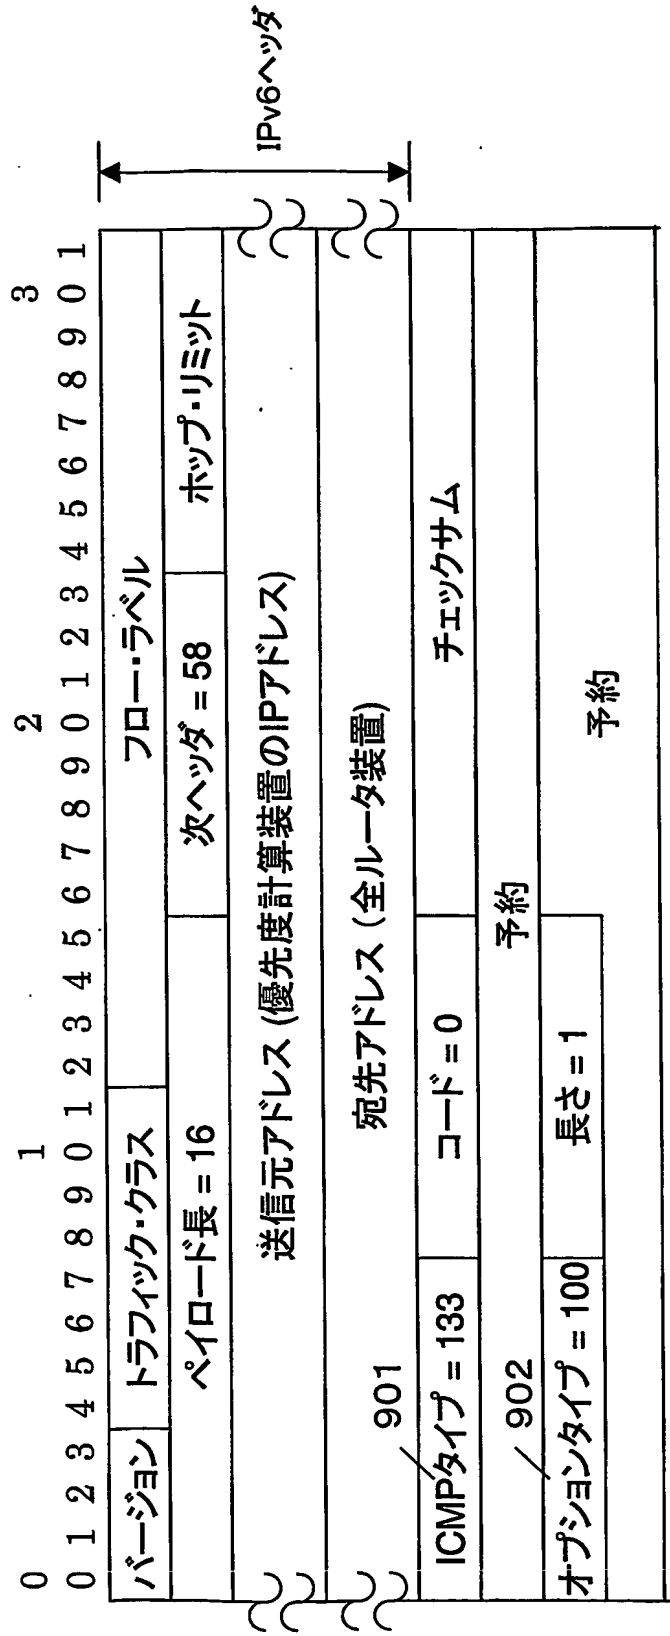 0 1 2 3
0 1 2 3 4 5 6 7 8 9 0 1 2 3 4 5 6 7 8 9 0 1 2 3 4 5 6 7 8 9 0 1
バージョン トラフィック・クラス フロー・ラベル
ペイロード長 = 16 次ヘッダ = 58 ホップ・リミット
送信元アドレス (優先度計算装置のIPアドレス)
宛先アドレス (全ルータ装置)
IPv6ヘッダ
901
ICMPタイプ = 133 コード = 0 チェックサム
予約
902
オプションタイプ = 100 長さ = 1
予約